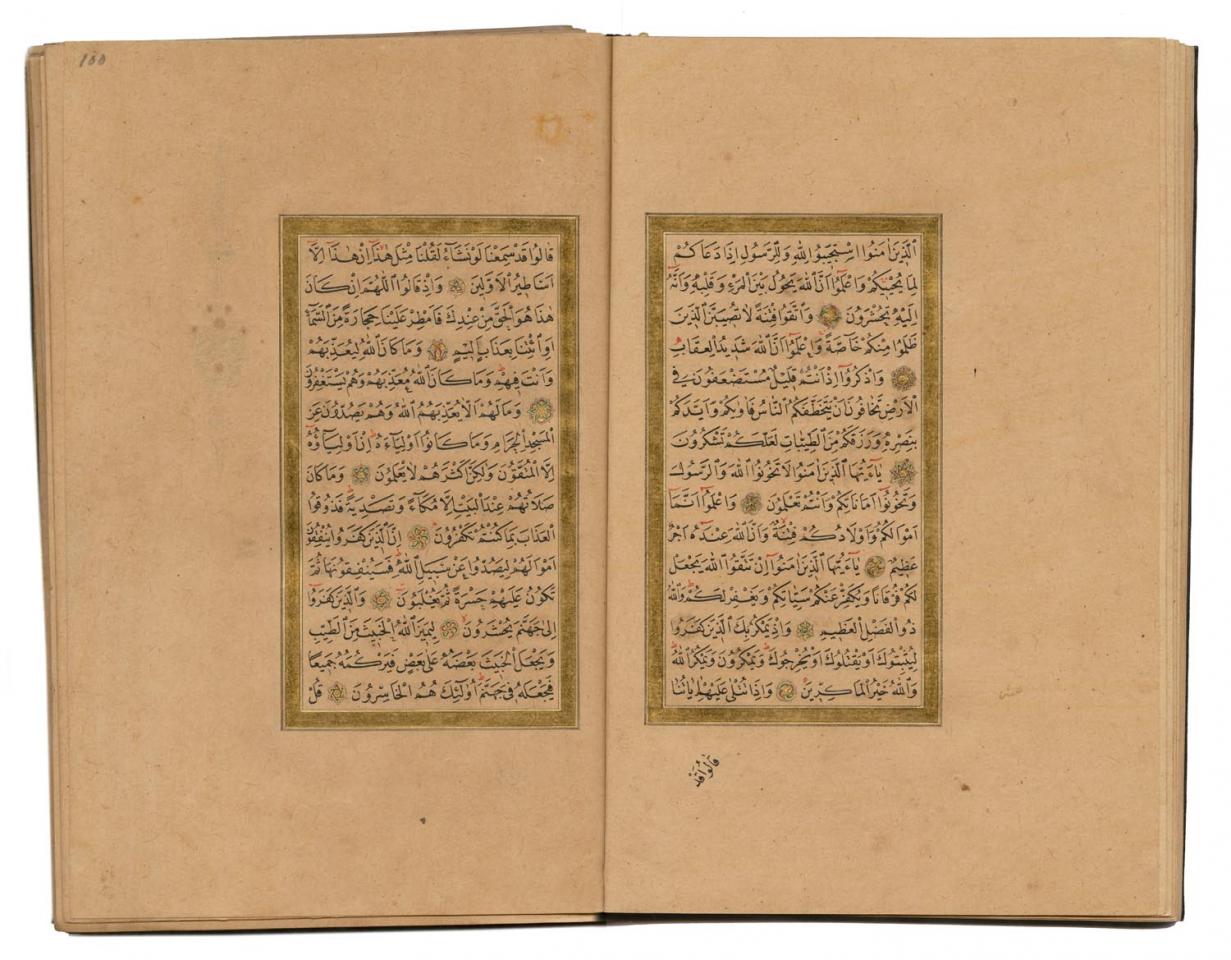 الَّذِينَ اٰمَنُوا اسْتَجِيبُوا لِلّٰهِ وَلِلرَّسُولِ اِذَا دَعَاكُمْ
لِمَا يُحْيِيكُمْ وَاعْلَمُوا اَنَّ اللّٰهَ يَحُولُ بَيْنَ الْمَرْءِ وَقَلْبِهِ وَاَنَّهُ
اِلَيْهِ تُحْشَرُونَ وَاتَّقُوا فِتْنَةً لَا تُصِيبَنَّ الَّذِينَ
ظَلَمُوا مِنْكُمْ خَاصَّةً وَاعْلَمُوا اَنَّ اللّٰهَ شَدِيدُ الْعِقَابِ
وَاذْكُرُوا اِذْ اَنْتُمْ قَلِيلٌ مُسْتَضْعَفُونَ فِي
الْاَرْضِ تَخَافُونَ اَنْ يَتَخَطَّفَكُمُ النَّاسُ فَاٰوٰيكُمْ وَاَيَّدَكُمْ
بِنَصْرِهِ وَرَزَقَكُمْ مِنَ الطَّيِّبَاتِ لَعَلَّكُمْ تَشْكُرُونَ
يَاءَيُّهَا الَّذِينَ اٰمَنُوا لَا تَخُونُوا اللّٰهَ وَالرَّسُولَ
وَتَخُونُوا اَمَانَاتِكُمْ وَاَنْتُمْ تَعْلَمُونَ وَاعْلَمُوا اَنَّمَا
اَمْوَالُكُمْ وَاَوْلَادُكُمْ فِتْنَةٌ وَاَنَّ اللّٰهَ عِنْدَهُ اَجْرٌ
عَظِيمٌ يَاءَيُّهَا الَّذِينَ اٰمَنُوا اِنْ تَتَّقُوا اللّٰهَ يَجْعَلْ
لَكُمْ فُرْقَانًا وَيُكَفِّرْ عَنْكُمْ سَيِّاٰتِكُمْ وَيَغْفِرْ لَكُمْ وَاللّٰهُ
ذُو الْفَضْلِ الْعَظِيمِ وَاِذْ يَمْكُرُ بِكَ الَّذِينَ كَفَرُوا
لِيُثْبِتُوكَ اَوْ يَقْتُلُوكَ اَوْ يُخْرِجُوكَ وَيَمْكُرُونَ وَيَمْكُرُ اللّٰهُ
وَاللّٰهُ خَيْرُ الْمَاكِرِينَ وَاِذَا تُتْلٰى عَلَيْهِمْ اٰيَاتُنَا
قالوا قد
100
قَالُوا قَدْ سَمِعْنَا لَوْ نَشَاءُ لَقُلْنَا مِثْلَ هٰذَا اِنْ هٰذَا اِلَّا
اَسَاطِيرُ الْاَوَّلِينَ وَاِذْ قَالُوا اللّٰهُمَّ اِنْ كَانَ
هٰذَا هُوَ الْحَقَّ مِنْ عِنْدِكَ فَاَمْطِرْ عَلَيْنَا حِجَارَةً مِنَ السَّمَاءِ
اَوِ ائْتِنَا بِعَذَابٍ اَلِيمٍ وَمَا كَانَ اللّٰهُ لِيُعَذِّبَهُمْ
وَاَنْتَ فِيهِمْ وَمَا كَانَ اللّٰهُ مُعَذِّبَهُمْ وَهُمْ يَسْتَغْفِرُونَ
وَمَا لَهُمْ اَلَّا يُعَذِّبَهُمُ اللّٰهُ وَهُمْ يَصُدُّونَ عَنِ
الْمَسْجِدِ الْحَرَامِ وَمَا كَانُوا اَوْلِيَاءَهُ اِنْ اَوْلِيَاؤُهُ
اِلَّا الْمُتَّقُونَ وَلٰكِنَّ اَكْثَرَهُمْ لَا يَعْلَمُونَ وَمَا كَانَ
صَلَاتُهُمْ عِنْدَ الْبَيْتِ اِلَّا مُكَاءً وَتَصْدِيَةً فَذُوقُوا
الْعَذَابَ بِمَا كُنْتُمْ تَكْفُرُونَ اِنَّ الَّذِينَ كَفَرُوا يُنْفِقُونَ
اَمْوَالَهُمْ لِيَصُدُّوا عَنْ سَبِيلِ اللّٰهِ فَسَيُنْفِقُونَهَا ثُمَّ
تَكُونُ عَلَيْهِمْ حَسْرَةً ثُمَّ يُغْلَبُونَ وَالَّذِينَ كَفَرُوا
اِلٰى جَهَنَّمَ يُحْشَرُونَ لِيَمِيزَ اللّٰهُ الْخَبِيثَ مِنَ الطَّيِّبِ
وَيَجْعَلَ الْخَبِيثَ بَعْضَهُ عَلٰى بَعْضٍ فَيَرْكُمَهُ جَمِيعًا
فَيَجْعَلَهُ فِي جَهَنَّمَ اُولٰئِكَ هُمُ الْخَاسِرُونَ قُلْ